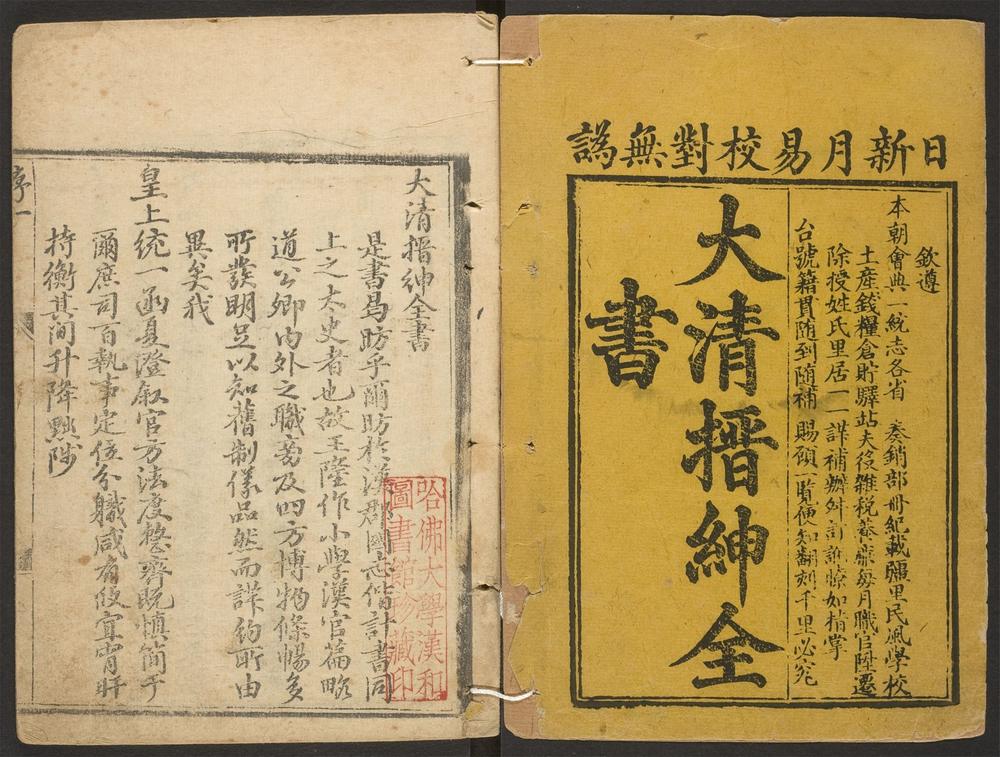 日新月易校對無譌
欽遵
本朝會典一統志各省 奏銷部冊紀載疆里民風學校
土產錢糧倉貯驛站夫役雜稅養廉每月職官陞遷
除授姓氏里居一一詳補辦舛訂訛瞭如指掌
台號籍貫隨到隨補 賜顧一覽便知翻刻千里必究
大清搢紳全
書
大清搢紳全書
是書曷昉乎爾昉於漢郡國志偕計書同
上之太史者也故王隆作小學漢官篇畧
道公卿内外之職旁及四方博物條暢多
所發明足以知舊制儀品然而詳約所由
異矣我
皇上統一函夏澄叙官方法度整齊既慎簡乎
爾庶司百執事定位分職咸有攸宜宵旰
持衡其間升降黜陟
序一
哈佛大學漢和
圖書館珍藏印